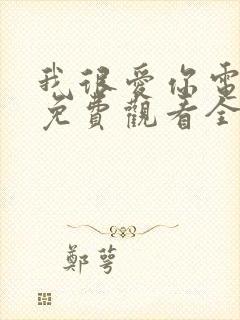 我很愛你電
免費觀看全
鄭萼